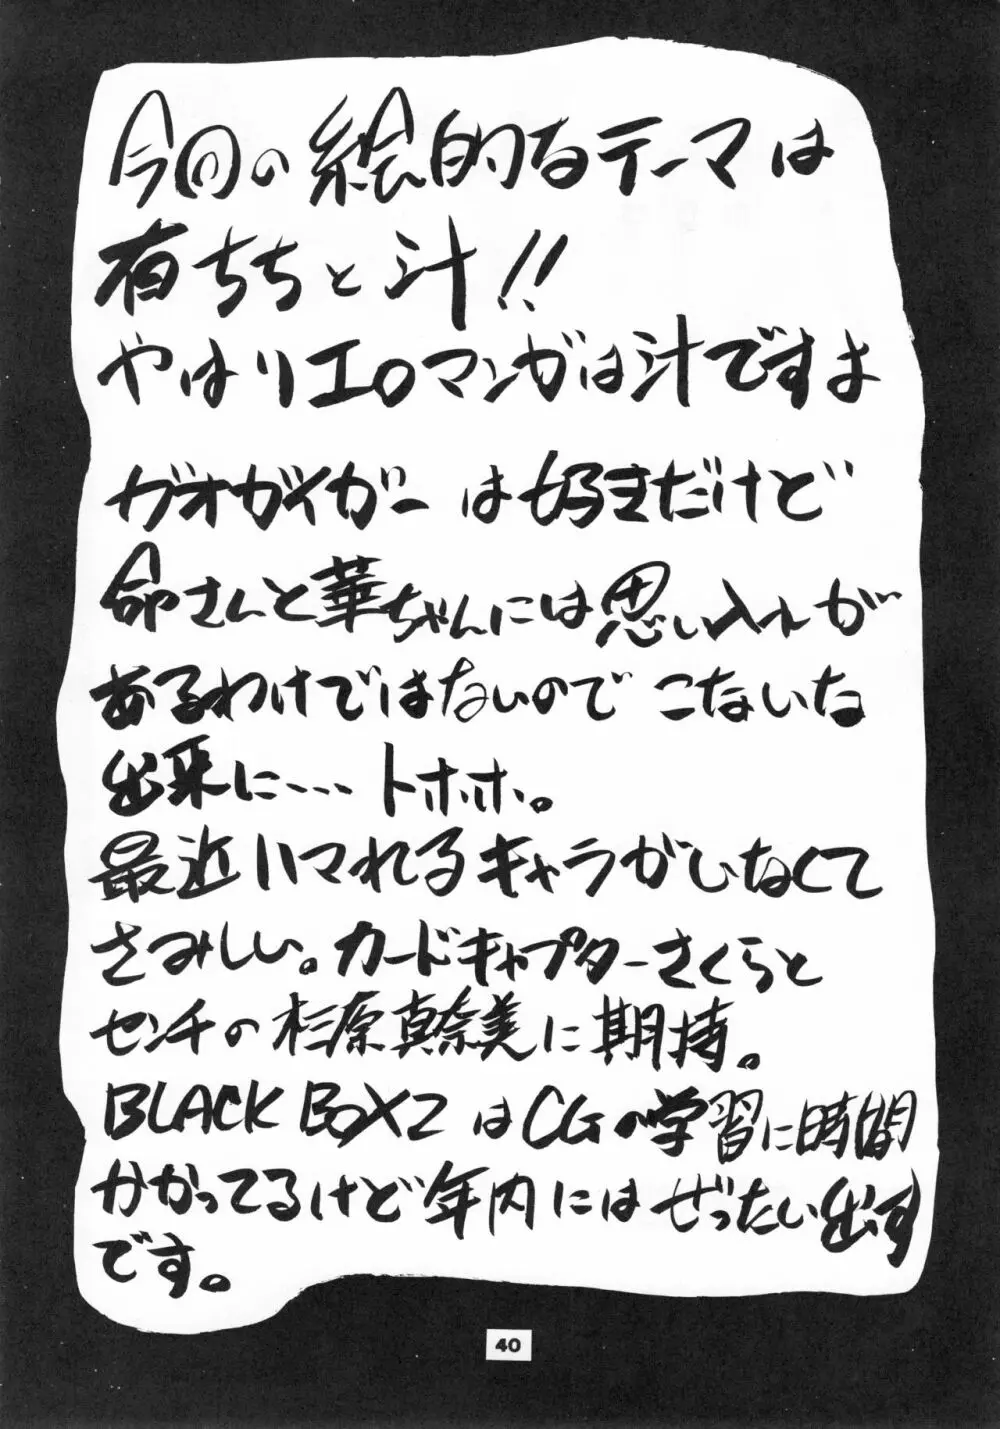 今回の絵的なテーマは
有ちちと汁!!
やはりエロマンガは汁ですよ
ガオガイガーは好きだけど
命さんと華ちゃんには思い入れが
あるわけではないのでこないな
出来に…トホホ。
最近ハマれるキャラがいなくて
さみしい。カードキャプターさくらと
センチの杉原真奈美に期待。
BLACK BOX2はCGの学習に時間
かかってるけど年内にはぜったい出す
です。
40